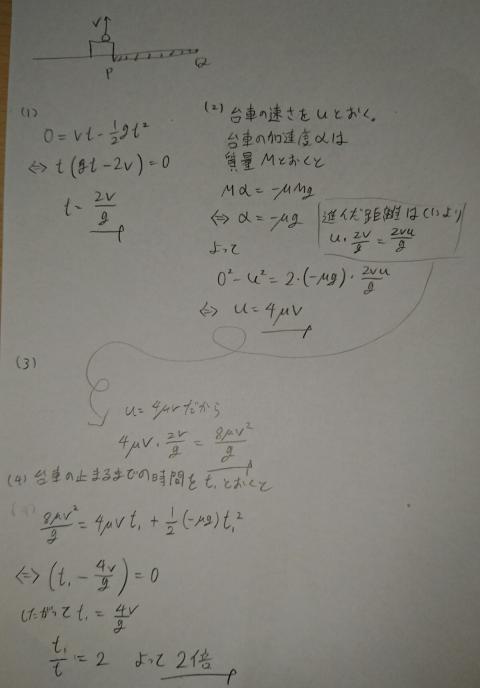 V↑
P
Q
(1)
0 = vt - 1/2 gt²
⇔ t(gt - 2v) = 0
t = 2v/g
(2) 台車の速さをuとおく。
台車の加速度αは
質量Mとおくと
Mα = -μMg
⇔ α = -μg
進んだ距離は(1)より
u・2v/g = 2vu/g
よって
0² - u² = 2・(-μg)・2vu/g
⇔ u = 4μv
(3)
u = 4μvだから
4μv・2v/g = 8μv²/g
(4) 台車の止まるまでの時間をt₁とおくと
8μv²/g = 4μvt₁ + 1/2(-μg)t₁²
⇔ (t₁ - 4v/g) = 0
したがって t₁ = 4v/g
t₁/t = 2 よって 2倍